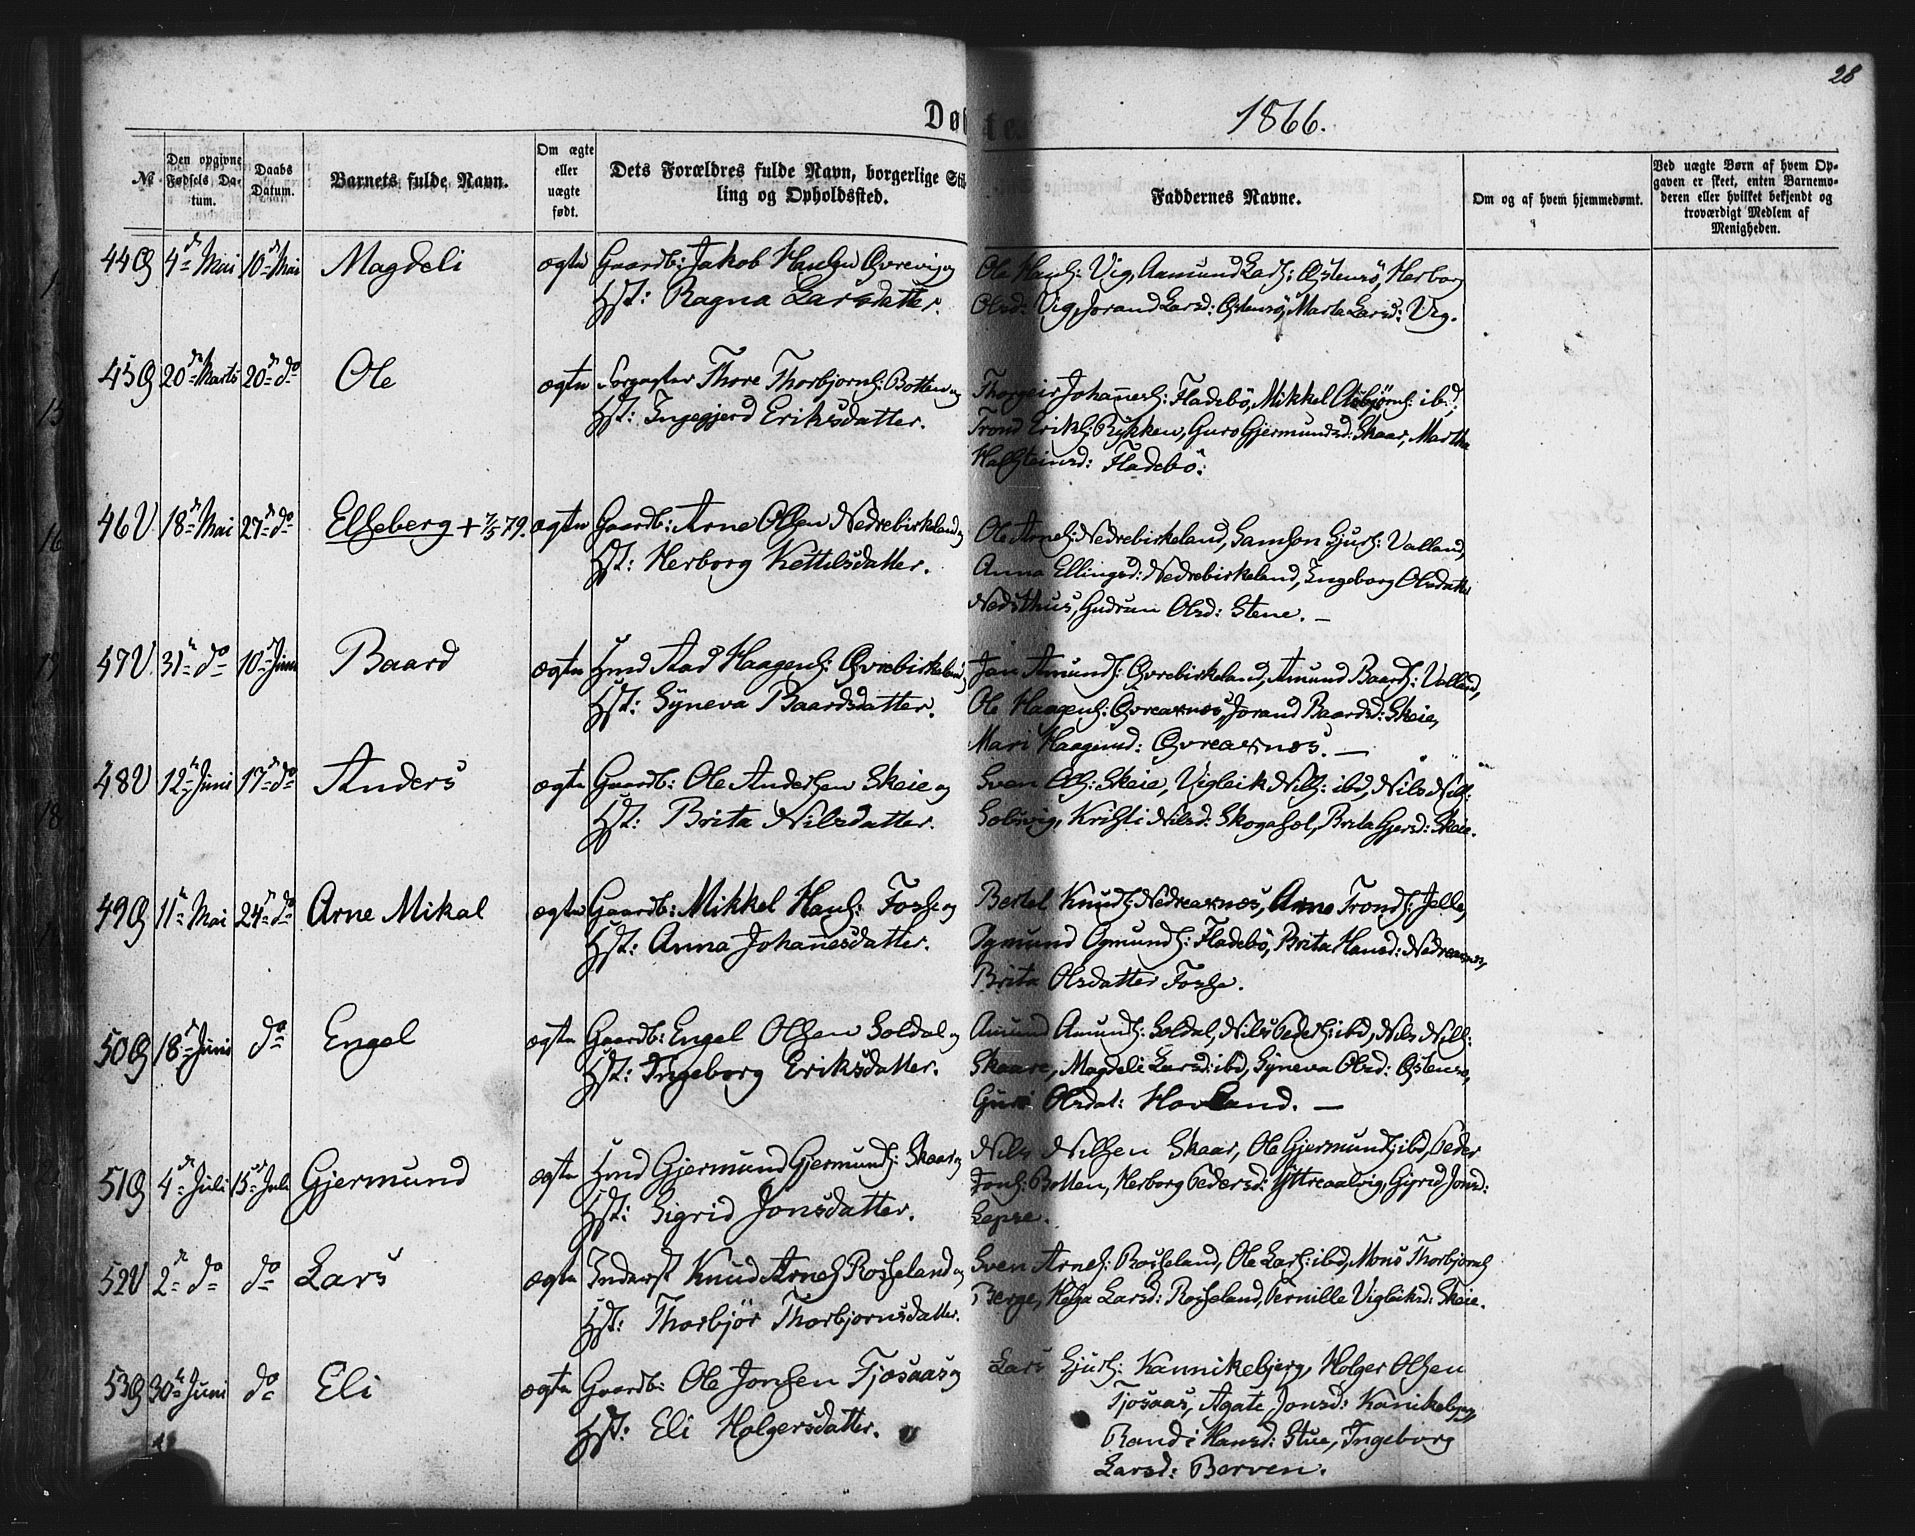 28
Døbte. 1866.
№
Den opgivne Fødsels Datum.
Daabs Datum.
Barnets fulde Navn.
Om ægte eller uægte født.
Dets Forældres fulde Navn, borgerlige Stilling og Opholdssted.
Faddernes Navne.
Om og af hvem hjemmedømt.
Ved uægte Børn af hvem Opgaven er skeet, enten Barnemoderen eller hvilket bekjendt og troværdigt Medlem af Menigheden.
44 Ø 4de Mai 10de Mai Magdeli ægte Gaardb: Jakob Hansen Øvrevig og
Hst: Ragna Larsdatter.
Ole Hans: Vig, Aamund Lars: Østensø, Herborg
Olsd: Vig, Jorand Larsd: Østensø, Marta Larsd: Vig.
45 Ø 20de Marts 20de do Ole ægte Thore Thorbjorns: Botten og
Hst: Ingegjerd Eriksdatter.
Thorgeir Johannes: Fladebø, Mikkel Asbjörns: ibd,
Trond Eriks: Rykken, Guro Gjermundsd: Skaar, Martha
Halsteinsd: Fladebö.
46 V 18de Mai 27de do Elseberg + 7/5 79. ægte Gaardb: Arne Olsen Nedrebirkeland og
Hst: Herborg Kettilsdatter.
Ole Arnes: Nedrebirkeland, Samson Gjurs: Valland,
Anna Ellingsd: Nedrebirkeland, Ingeborg Olsdatter
Nedsthus, Gudrun Olsd: Stene. —
47 V 31te do 10de Juni Baard ægte Hmd Aad Haagens: Øvrebirkeland og
Hst: Syneva Baardsdatter.
Jon Amunds: Øvrebirkeland, Amund Baards: Valland,
Ole Haagens: Øvreaxnæs, Jorand Baardsd: Skeie,
Mari Haagensd: Øvreaxnæs. —
48 V 12te Juni 17de do Anders ægte Gaardb: Ole Andersen Skeie og
Hst: Brita Nilsdatter.
Sven Ols: Skeie, Vigleik Nils: ibd, Nils Nils:
Solsvig, Kristi Nilsd: Skogasel, Brita Gjersd: Skeie.
49 Ø 11te Mai 24de do Arne Mikal ægte Gaardb: Mikkel Hans: Fosse og
Hst: Anna Johannesdatter.
Bertel Knuds: Nedreaxnæs, Arne Tronds: Jelle,
Ogmund Ogmunds: Fladebö, Brita Hansd: Nedreaxnæs,
Brita Olsdatter Fosse.
50 Ø 18de Juni do Engel ægte Gaardb: Engel Olsen Soldal og
Hst: Ingeborg Eriksdatter.
Amund Amunds: Soldal, Nils Peders: ibd, Nils Nils:
Skaare, Magdeli Larsd: ibd, Syneva Olsd: Østensø,
Guro Olsdat: Hovland. —
51 Ø 4de Juli 15de Juli Gjermund ægte Hmd Gjermund Gjermunds: Skaar og
Hst: Sigrid Jonsdatter.
Nils Nilsen Skaar, Ole Gjermunds: ibd, Peder
Jons: Botten, Herborg Pedersd: Yttreaalvig, Sigrid Jonsd:
Lepse.
52 V 2de do do Lars ægte Inderst Knud Arnes: Rosseland og
Hst: Thorbjör Thorbjornsdatter.
Sven Arnes: Rosseland, Ole Lars: ibd, Mons Thorbjorns:
Berge, Helga Larsd: Rosseland, Pernille Vigleiksd: Skeie.
53 Ø 30te Juni do Eli ægte Gaardb: Ole Jonsen Fjosaas og
Hst: Eli Holgersdatter.
Lars Gjurs: Kannikebjerg, Holger Olsen
Fjosaas, Agate Jonsd: Kanikebjerg,
Randi Hansd: Stue, Ingeborg
Larsd: Berven.